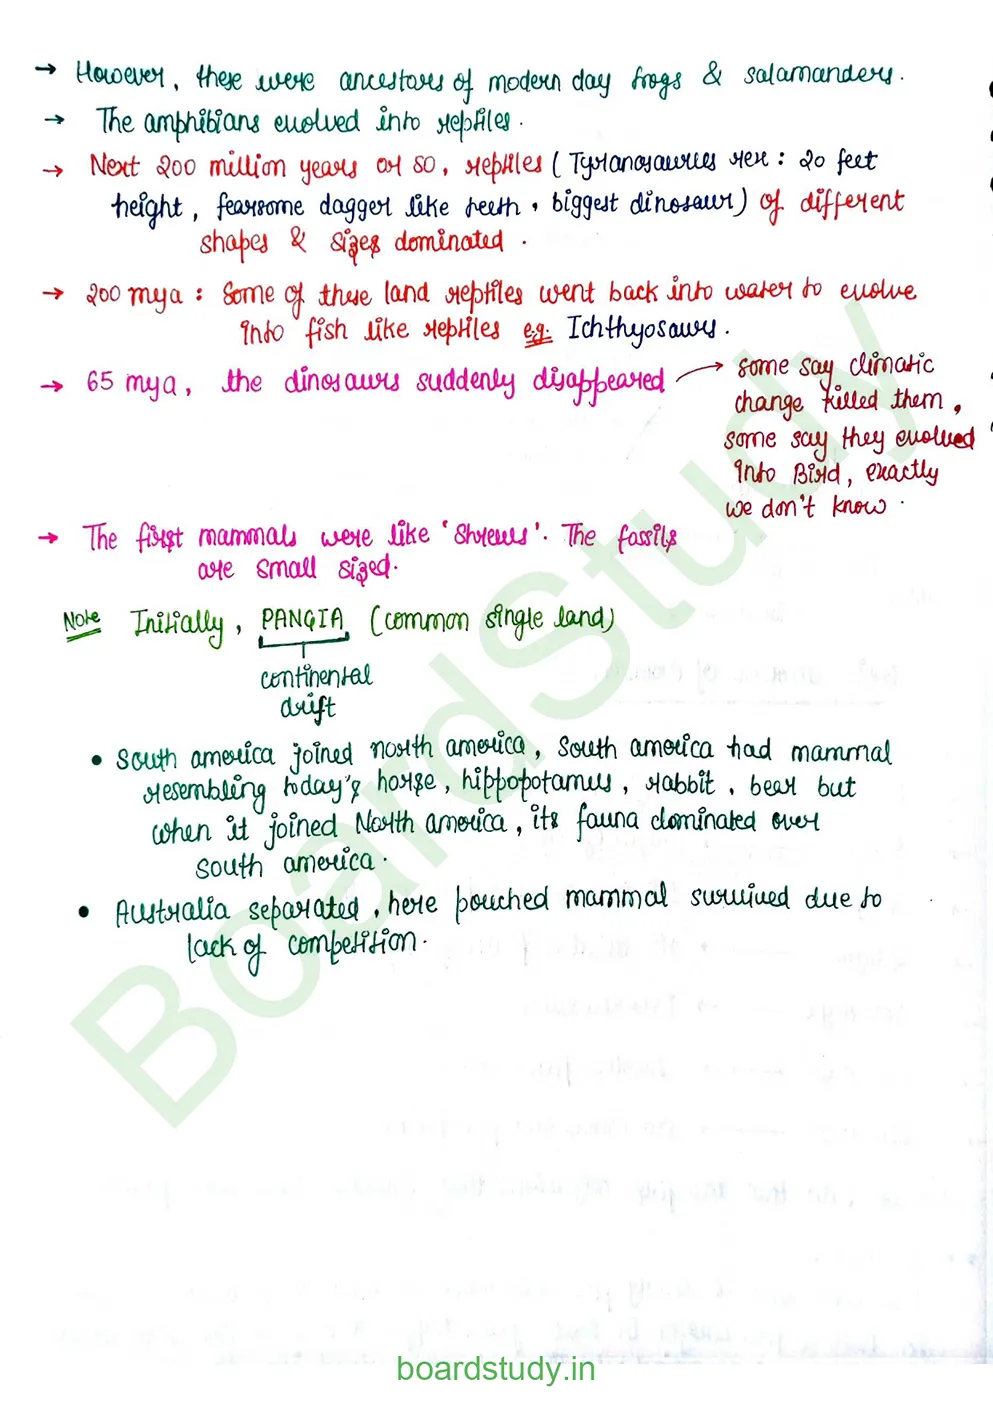 → However, these were ancestors of modern day frogs & salamanders.
→ The amphibians evolved into reptiles.
→ Next 200 million years or so, reptiles (Tyranosaurus rex : 20 feet
height, fearsome dagger like teeth, biggest dinosaur) of different
shapes & sizes dominated.
→ 200 mya : Some of these land reptiles went back into water to evolve
into fish like reptiles e.g. Ichthyosaurs.
→ 65 mya, the dinosaurs suddenly disappeared → some say climatic
change killed them,
some say they evolved
into Bird, exactly
we don't know.
→ The first mammals were like 'Shrews'. The fossils
are small sized.
Note Initially, PANGIA (common single land)
continental
drift
• South america joined north america, South america had mammal
resembling today's horse, hippopotamus, rabbit, bear but
when it joined North america, its fauna dominated over
south america.
• Australia separated, here pouched mammal survived due to
lack of competition.
BoardStudy
boardstudy.in